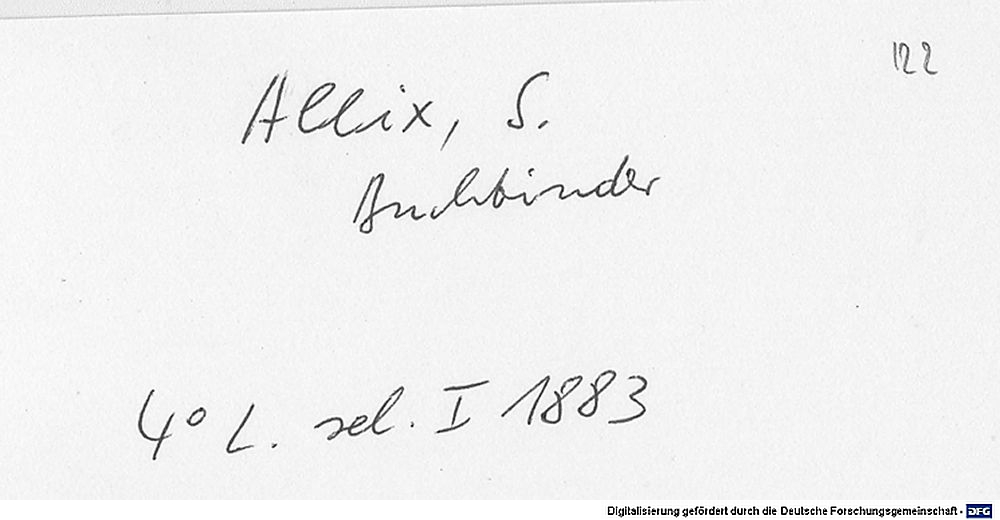 122
Allix, S.
Buchbinder
4° L. sel. I 1883
Digitalisierung gefördert durch die Deutsche Forschungsgemeinschaft - DFG